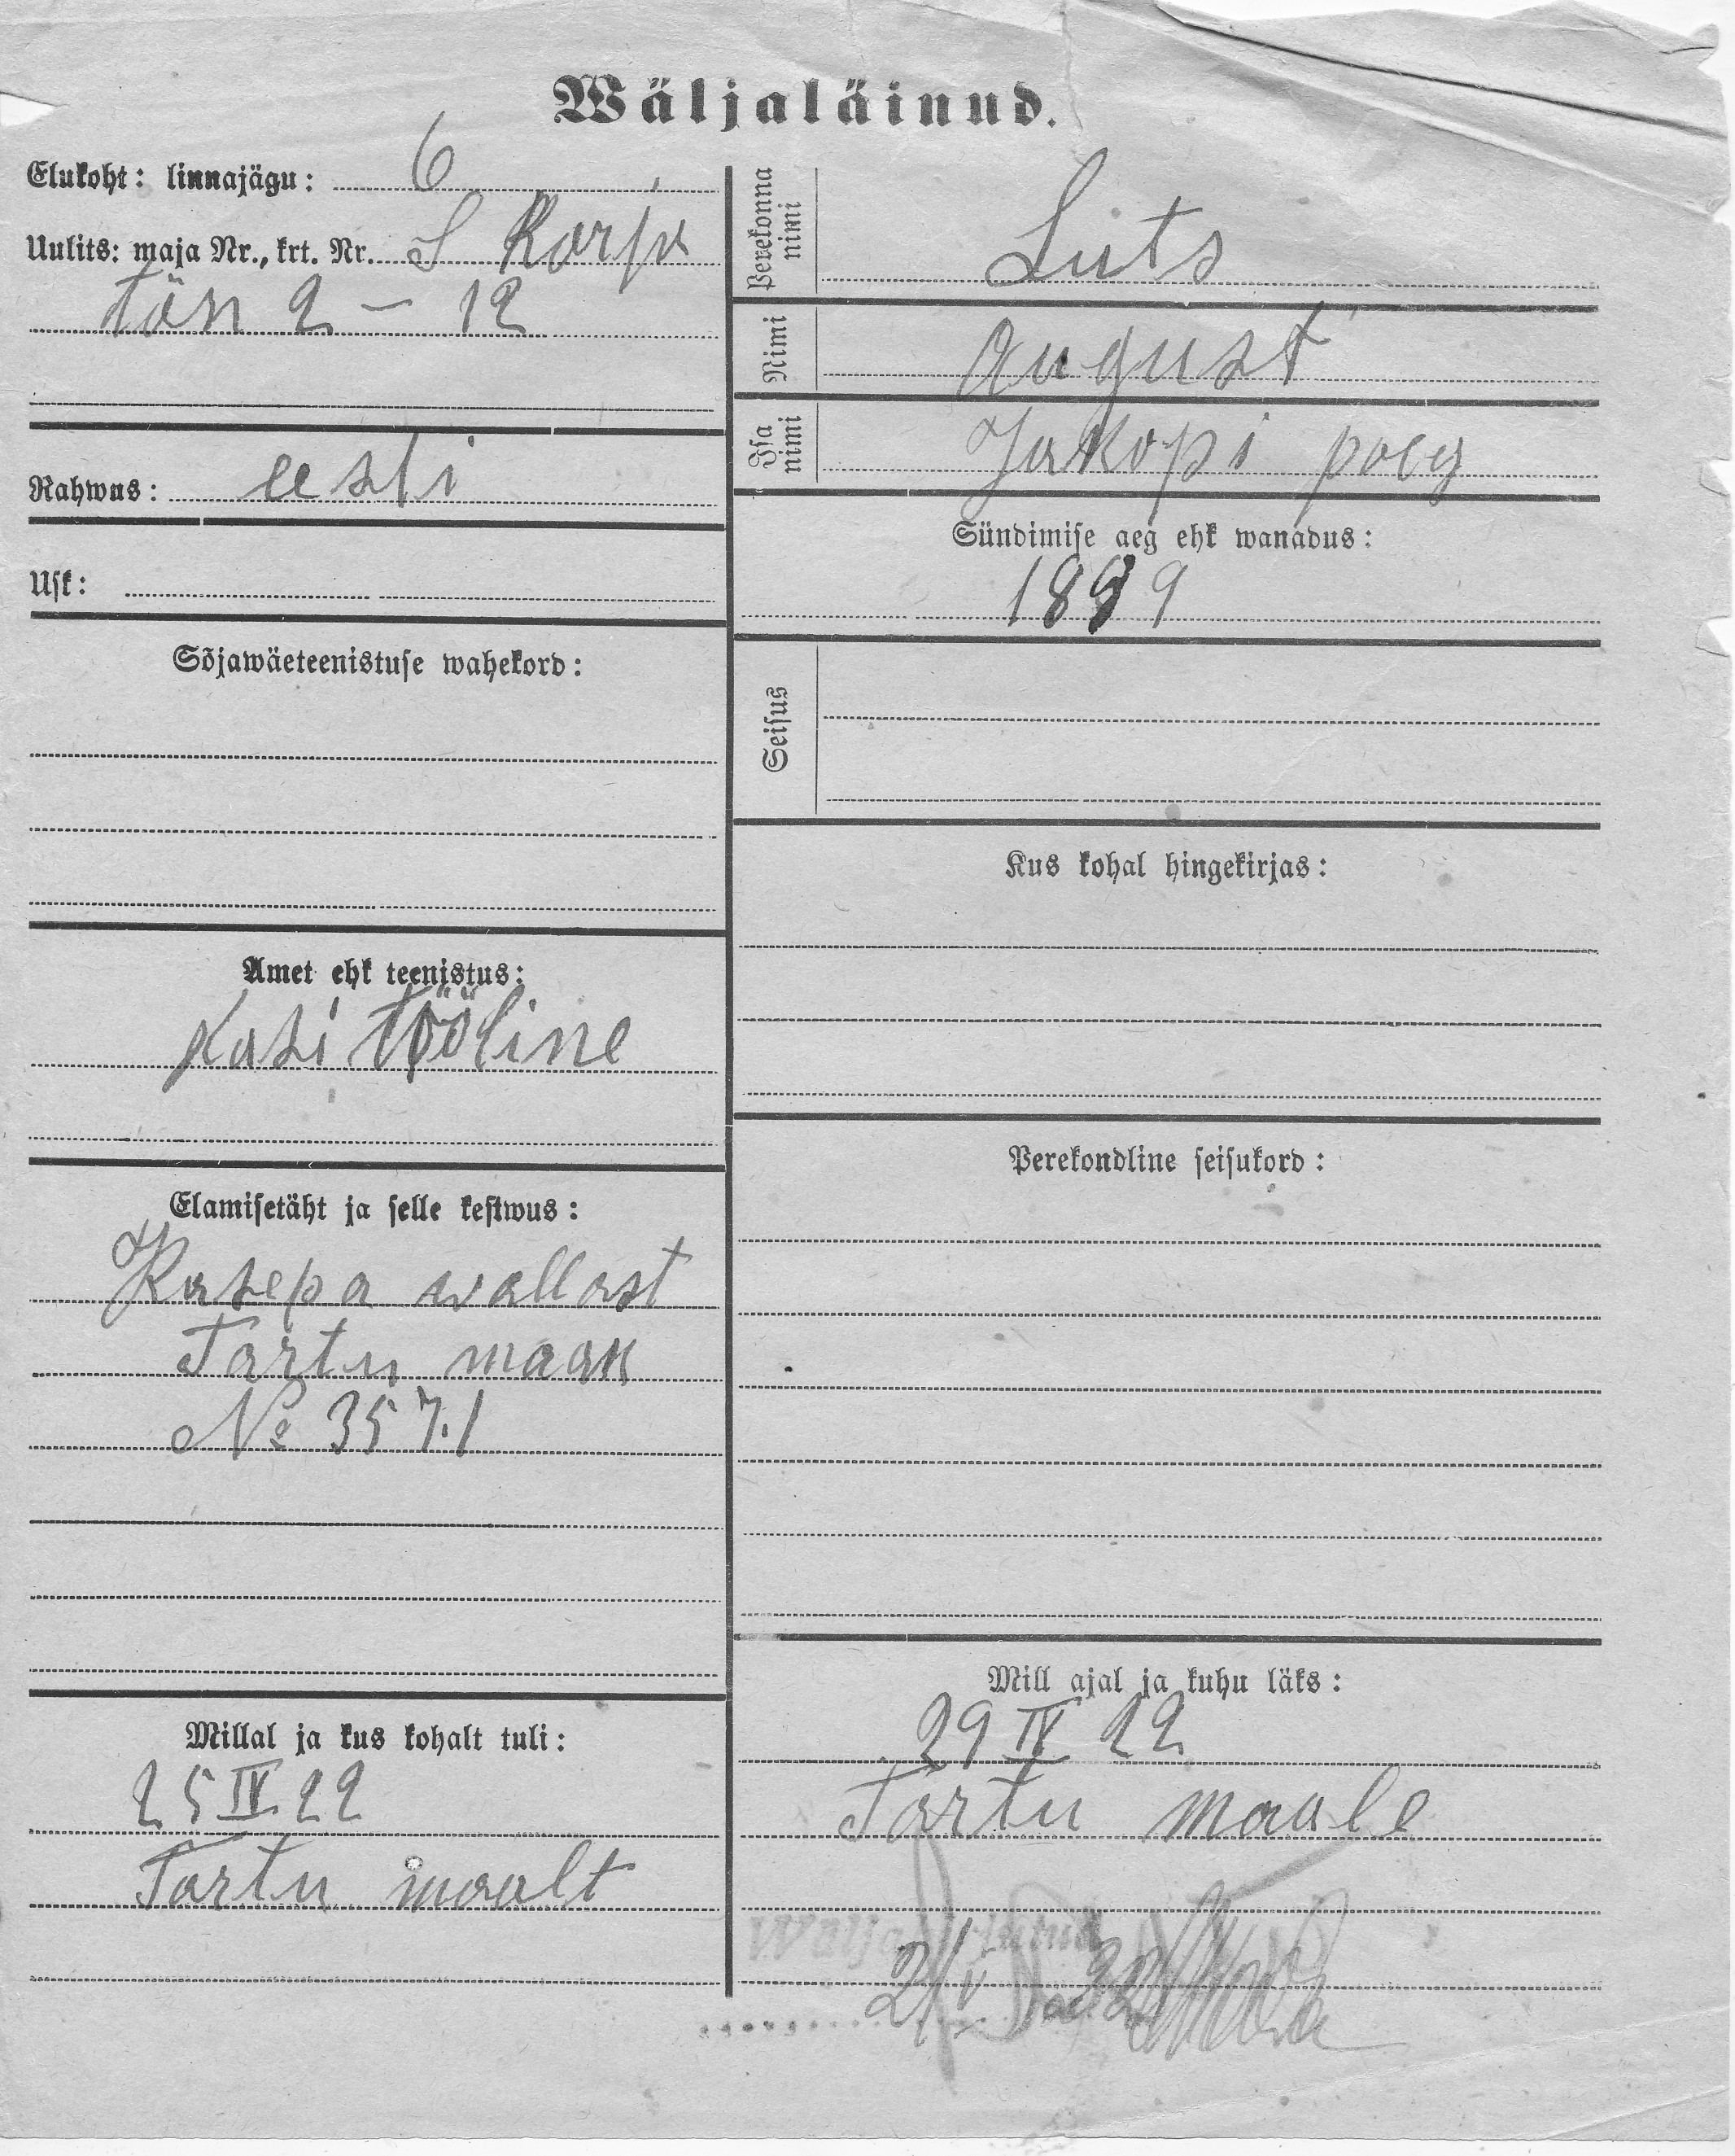 Wäljaläinud.
Elukoht: linnajägu: 6
Uulits: maja Nr., krt. Nr. S Karja
tän 2 – 12
Rahwus: eesti
Usk:
Sõjawäeteenistuse wahekord:
Amet ehk teenistus:
Kasi tööline
Elamisetäht ja selle kestwus:
Kasepa wallast
Tartu maak
№ 357.1
Millal ja kus kohalt tuli:
25 IV 22
Tartu maalt
Perekonna nimi
Luts
Nimi
August
Isa nimi
Jakopi poeg
Sündimise aeg ehk wanadus:
1899
Seisus
Kus kohal hingekirjas:
Perekondline seisukord:
Mill ajal ja kuhu läks:
29 IV 22
Tartu maale
2/V